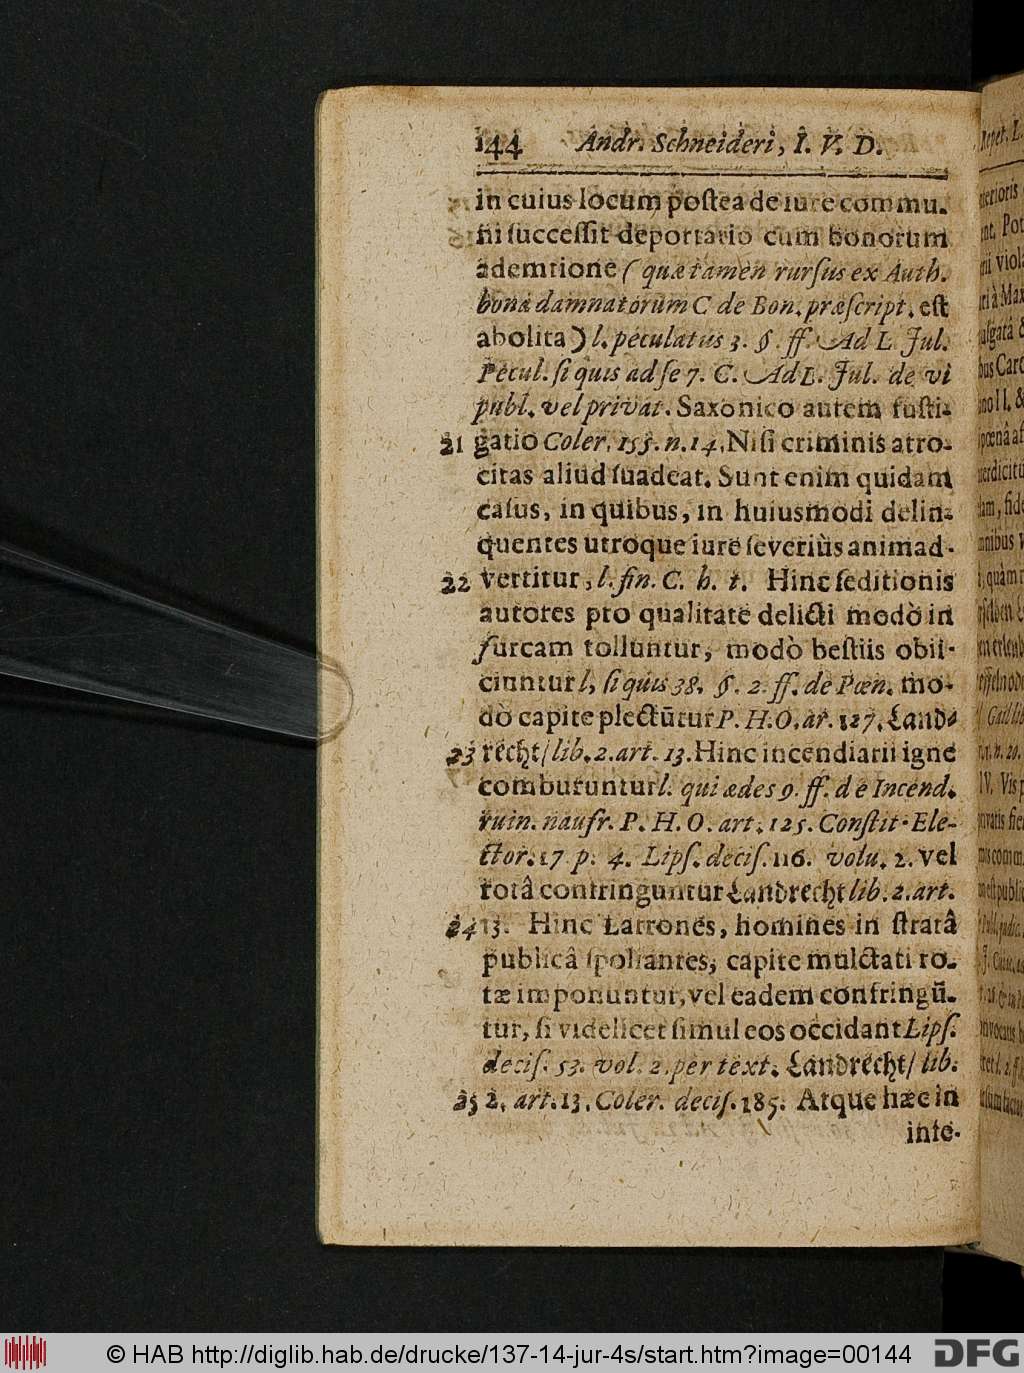 144 Andr. Schneideri, I. V. D.
in cuius locum poſtea de iure commu-
ni ſucceſſit deportatio cum bonorum
ademtione (quæ tamen rurſus ex Auth.
bona damnatorum C de Bon. præſcript. eſt
abolita) l. peculatus 3. §. ff. Ad L. Jul.
Pecul. ſi quis ad ſe 7. C. Ad L. Jul. de vi
publ. vel privat. Saxonico autem fuſti-
21 gatio Coler. 155. n. 14. Niſi criminis atro-
citas aliud ſuadeat. Sunt enim quidam
caſus, in quibus, in huiusmodi delin-
quentes utroque iure ſeveriùs animad-
22 vertitur, l. fin. C. h. t. Hinc ſeditionis
autores pro qualitate delicti modò in
furcam tolluntur, modò beſtiis obii-
ciuntur l. ſi quis 38. §. 2. ff. de Pœn. mo-
dò capite plectūtur P. H. O. ar. 127. Land-
23 recht/ lib. 2. art. 13. Hinc incendiarii igne
comburuntur l. qui ædes 9. ff. de Incend.
ruin. naufr. P. H. O. art. 125. Conſtit. Ele-
ctor. 17 p. 4. Lipſ. deciſ. 116. volu. 2. vel
rotâ confringuntur Landrecht lib. 2. art.
24 13. Hinc Latrones, homines in ſtratâ
publicâ ſpoliantes, capite mulctati ro-
tæ imponuntur, vel eadem confringū-
tur, ſi videlicet ſimul eos occidant Lipſ.
deciſ. 53. vol. 2. per text. Landrecht/ lib.
25 2. art. 13. Coler. deciſ. 185. Atque hæc in
inte-
© HAB http://diglib.hab.de/drucke/137-14-jur-4s/start.htm?image=00144
DFG